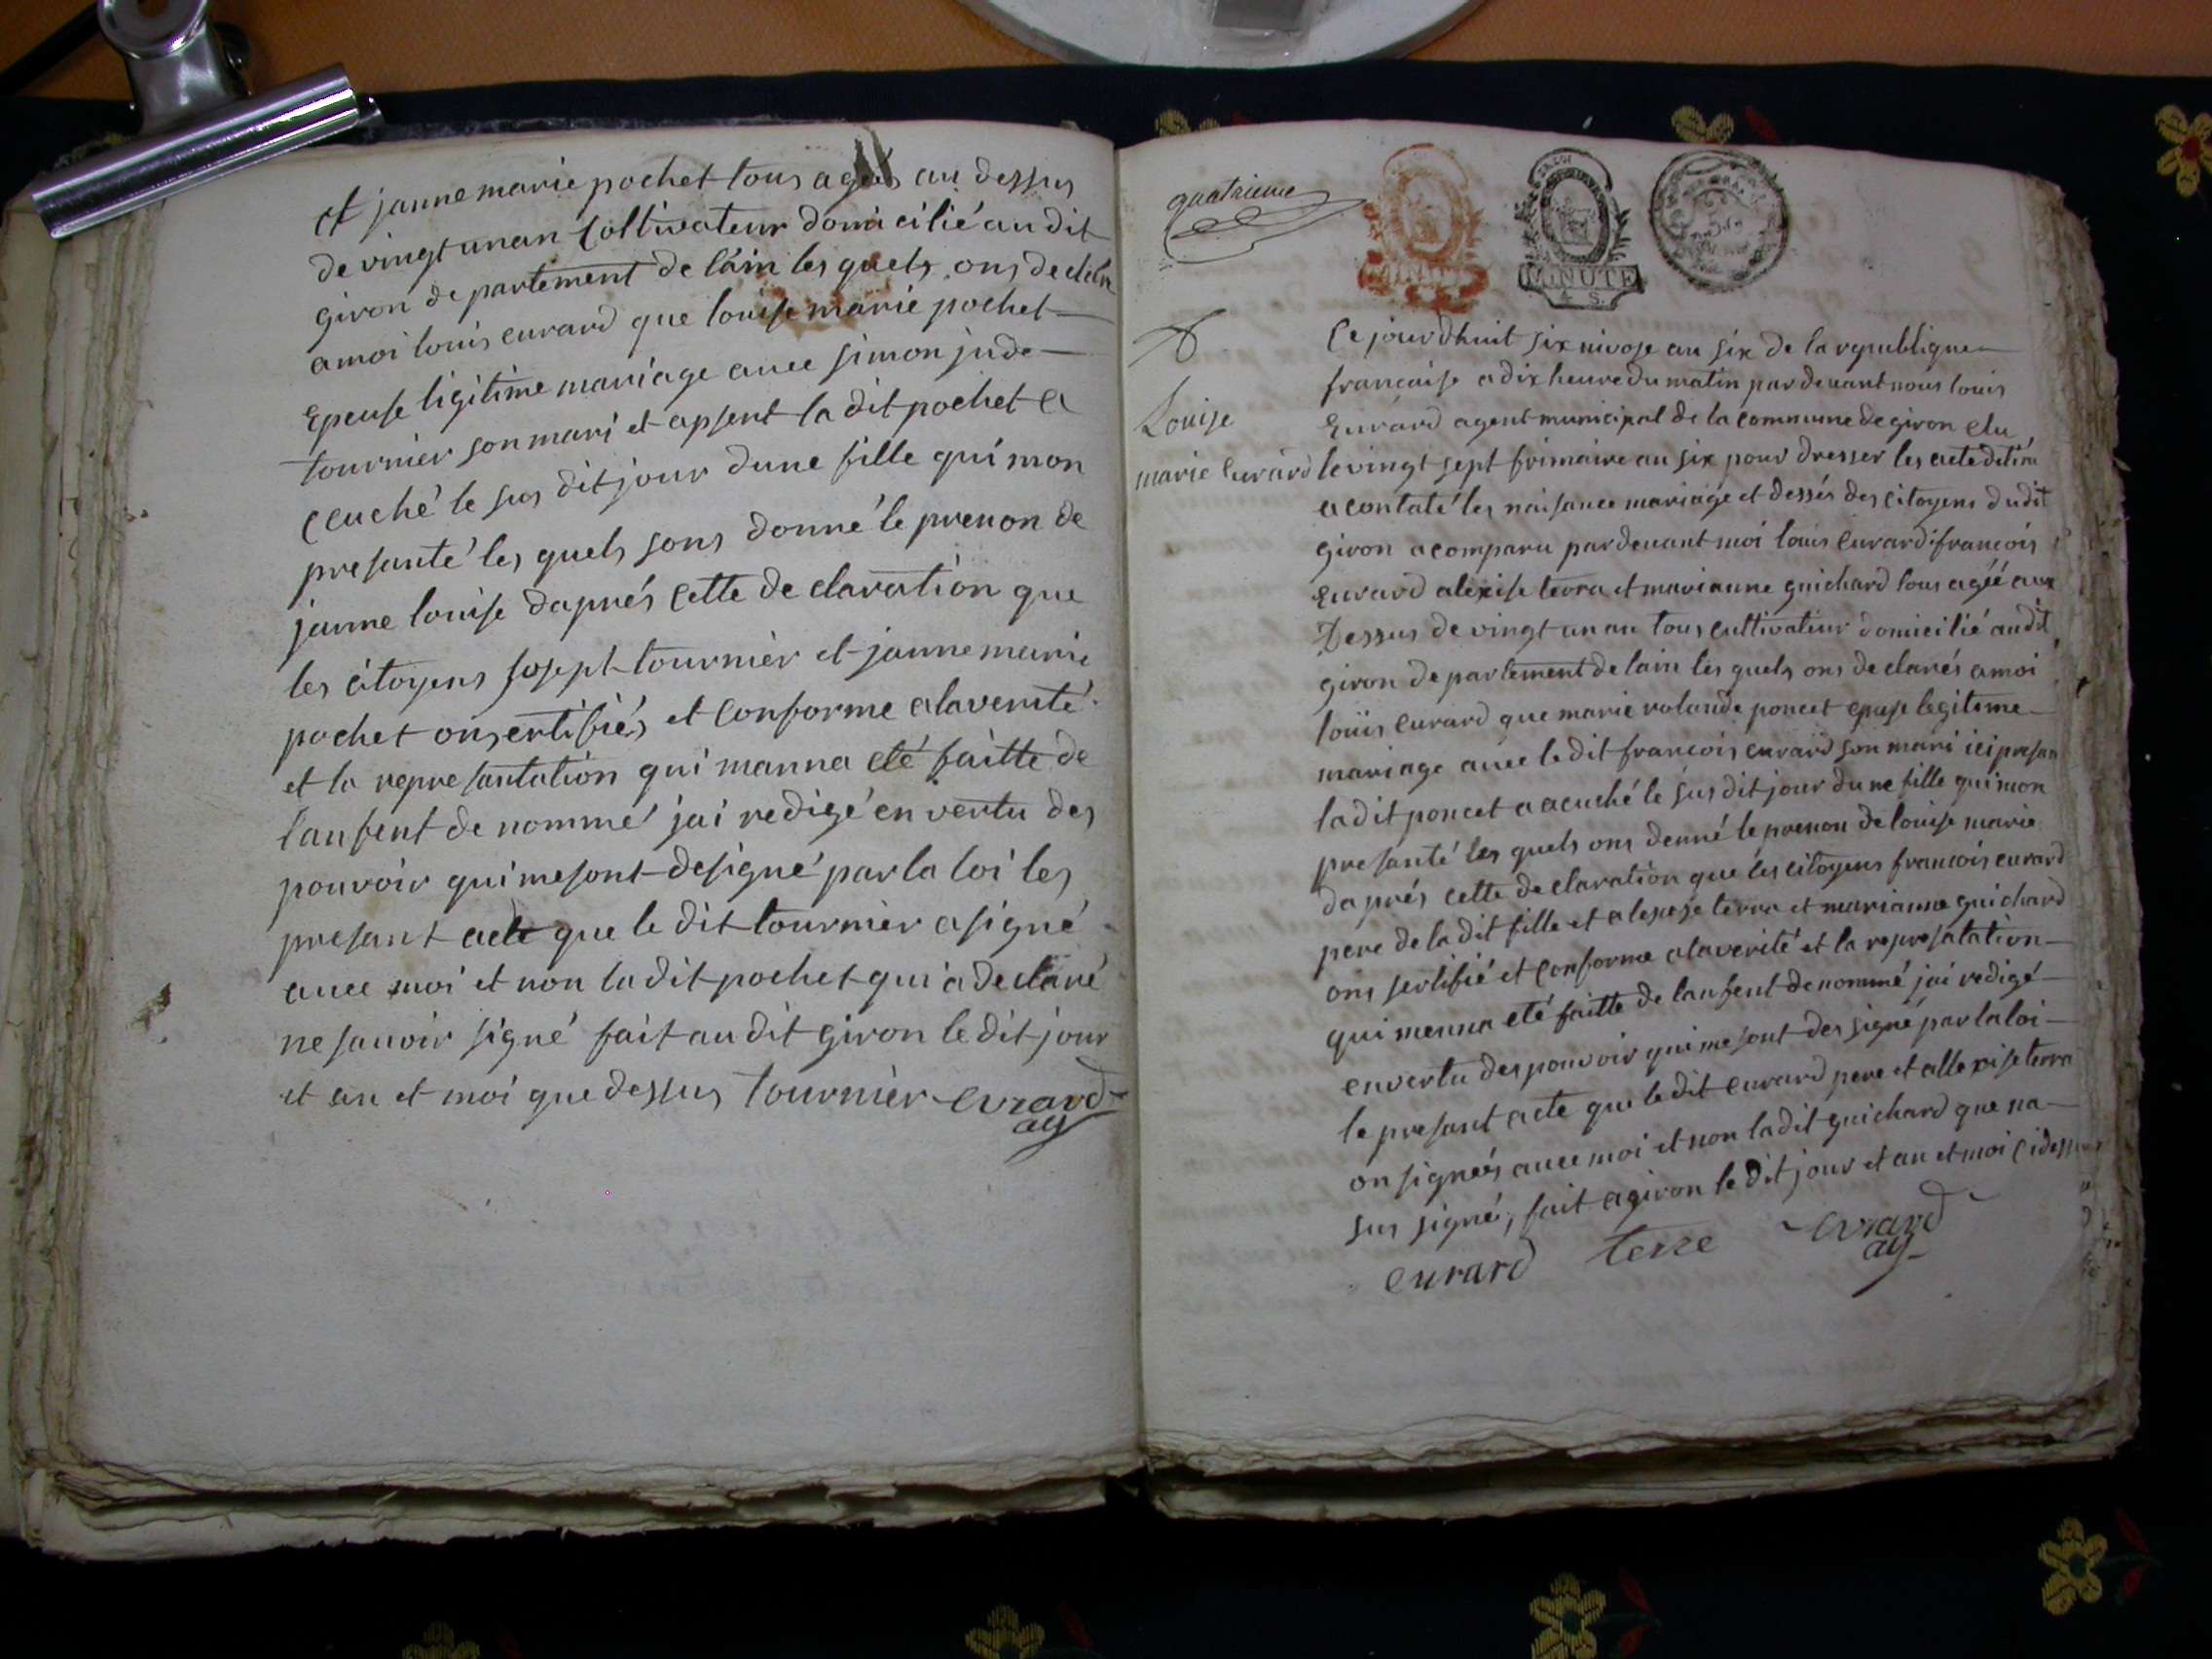 et janne marie pochet tous agés au dessus
de vingt un an Coltivateur domicilié au dit
giron departement de l'ain les quels ons declaré
a moi louis eurard que louise marie pochet
Epeuse ligitime mariage auec simon jude
tournier son mari et apsent la dit pochet a
ccuché le sus dit jour dune fille qui mon
presanté les quels sons donné le prenon de
janne louise daprés cette declaration que
les citoyens joseph tournier et janne marie
pochet on sertifiés et conforme a la verité
et la represantation qui manna eté faitte de
lanfent denommé jai redigé en vertu des
pouvoir qui me sont designé par la loi les
presant acte que le dit tournier a signé
auec moi et non la dit pochet qui a declaré
ne sauoir signé fait au dit giron le dit jour
et an et moi que dessus tournier evrard
ag
quatrieme
MINUTE
MINUTE
4 S.
Louise
marie Eurard
Ce jourdhuit six nivose an six de la republique
française a dix heure du matin par deuant nous louis
Eurard agent municipal de la commune de giron elu
le vingt sept frimaire an six pour dresser les acte detiné
a contaté les naisance mariage et dessés des citoyens dudit
giron a comparu par deuant moi louis eurard francois
eurard alexise terra et marianne guichard tous agéé aux
Dessus de vingt un an tous cultivateur domicilié au dit
giron departement de lain les quels ons declarés a moi
louis eurard que marie rolande poncet epuse legiteme
mariage auec le dit francois eurard son mari ici presan
la dit poncet a acuché le sus dit jour dune fille qui mon
presanté les quels ons denné le prenon de louise marie
daprés cette declaration que les citoyens francois eurard
pere de la dit fille et alexese terra et marianne guichard
ons sertifié et conforme a la verité et la represatation
qui menna eté faitte de lanfent denommé jai redigé
en vertu des pouvoir qui me sont dessigné par la loi
le presant acte que le dit eurard pere et allexise terra
on signeés auec moi et non la dit guichard que na
sus signé, fait a giron le dit jour et an et moi ci dessus
eurard terre evrard
ag